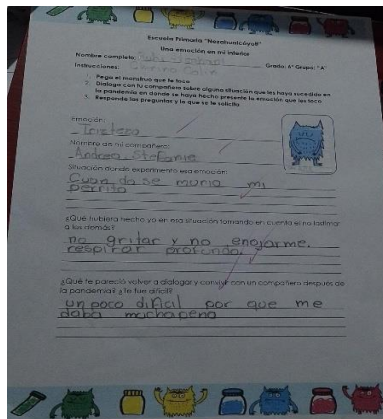 Escuela Primaria "Nezahualcóyotl"
Una emoción en mi interior
Nombre completo:
Grado: 6° Grupo: "A"
Instrucciones:
1. Pega el monstruo que te toco
2. Dialoga con tu compañero sobre alguna situación que les haya sucedido en
la pandemia en donde se haya hecho presente la emoción que les toco
3. Responde las preguntas y lo que se te solicita
Emoción:
Tristeza
Nombre de mi compañero:
Andrea Stefanie
Situación donde experimento esa emoción:
Cuan do se muria mi
perrito
¿Qué hubiera hecho yo en esa situación tomando en cuenta el no lastimar
a los demás?
no gritar y no enojarme.
respirar profundo.
¿Qué te pareció volver a dialogar y convivir con un compañero después de
la pandemia? ¿Te fue difícil?
un poco dificil por que me
daba mucha pena